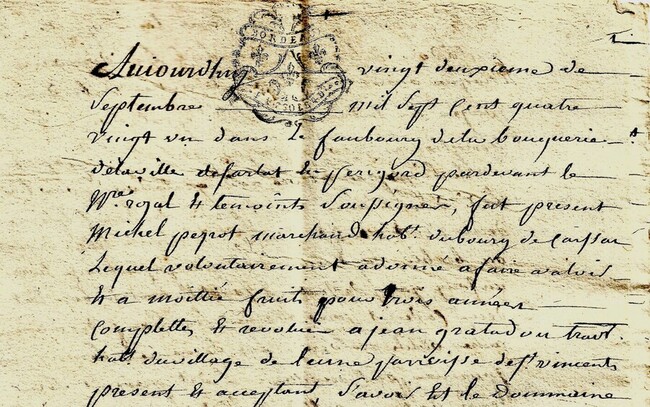 BORDEAUX
Aujourdhuy vingt deuxieme de
Septembre mil Sept Cent quatre
vingt un dans le faubourg dela bouquerie
dela ville de sarlat en perigord pardevant le
Nre. royal et temoins Soussignés, fut present
Michel peyrot marchand habt. du bourg de Carssac
Lequel volontairement a donné a faire valoir
Et a moitié fruits pour trois années
complettes Et revolues a jean gratadou travr.
habt. du village de paroisse de st. vincent
present Et acceptant Savoir Est le Dommaine